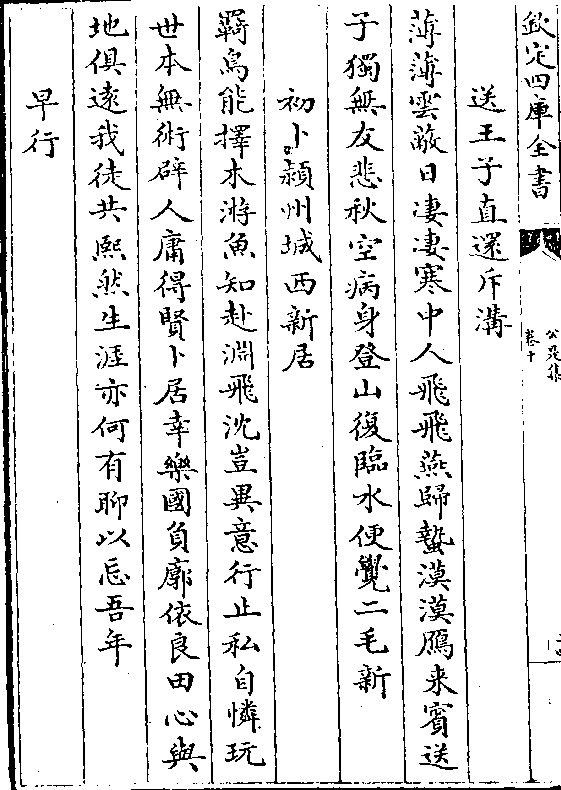 欽定四庫全書
公是集
卷十
送王子直還斥溝
薄薄雲敵日凄凄寒中人飛飛燕歸蟄漠漠鴈来賓送
子獨無友悲秋空病身登山復臨水便覺二毛新
初卜潁州城西新居
羇鳥能擇木游魚知赴淵飛沈豈異意行止私自憐玩
世本無術辟人庸得賢卜居幸樂國負廓依良田心與
地俱遠我徒共熙然生涯亦何有聊以忘吾年
早行